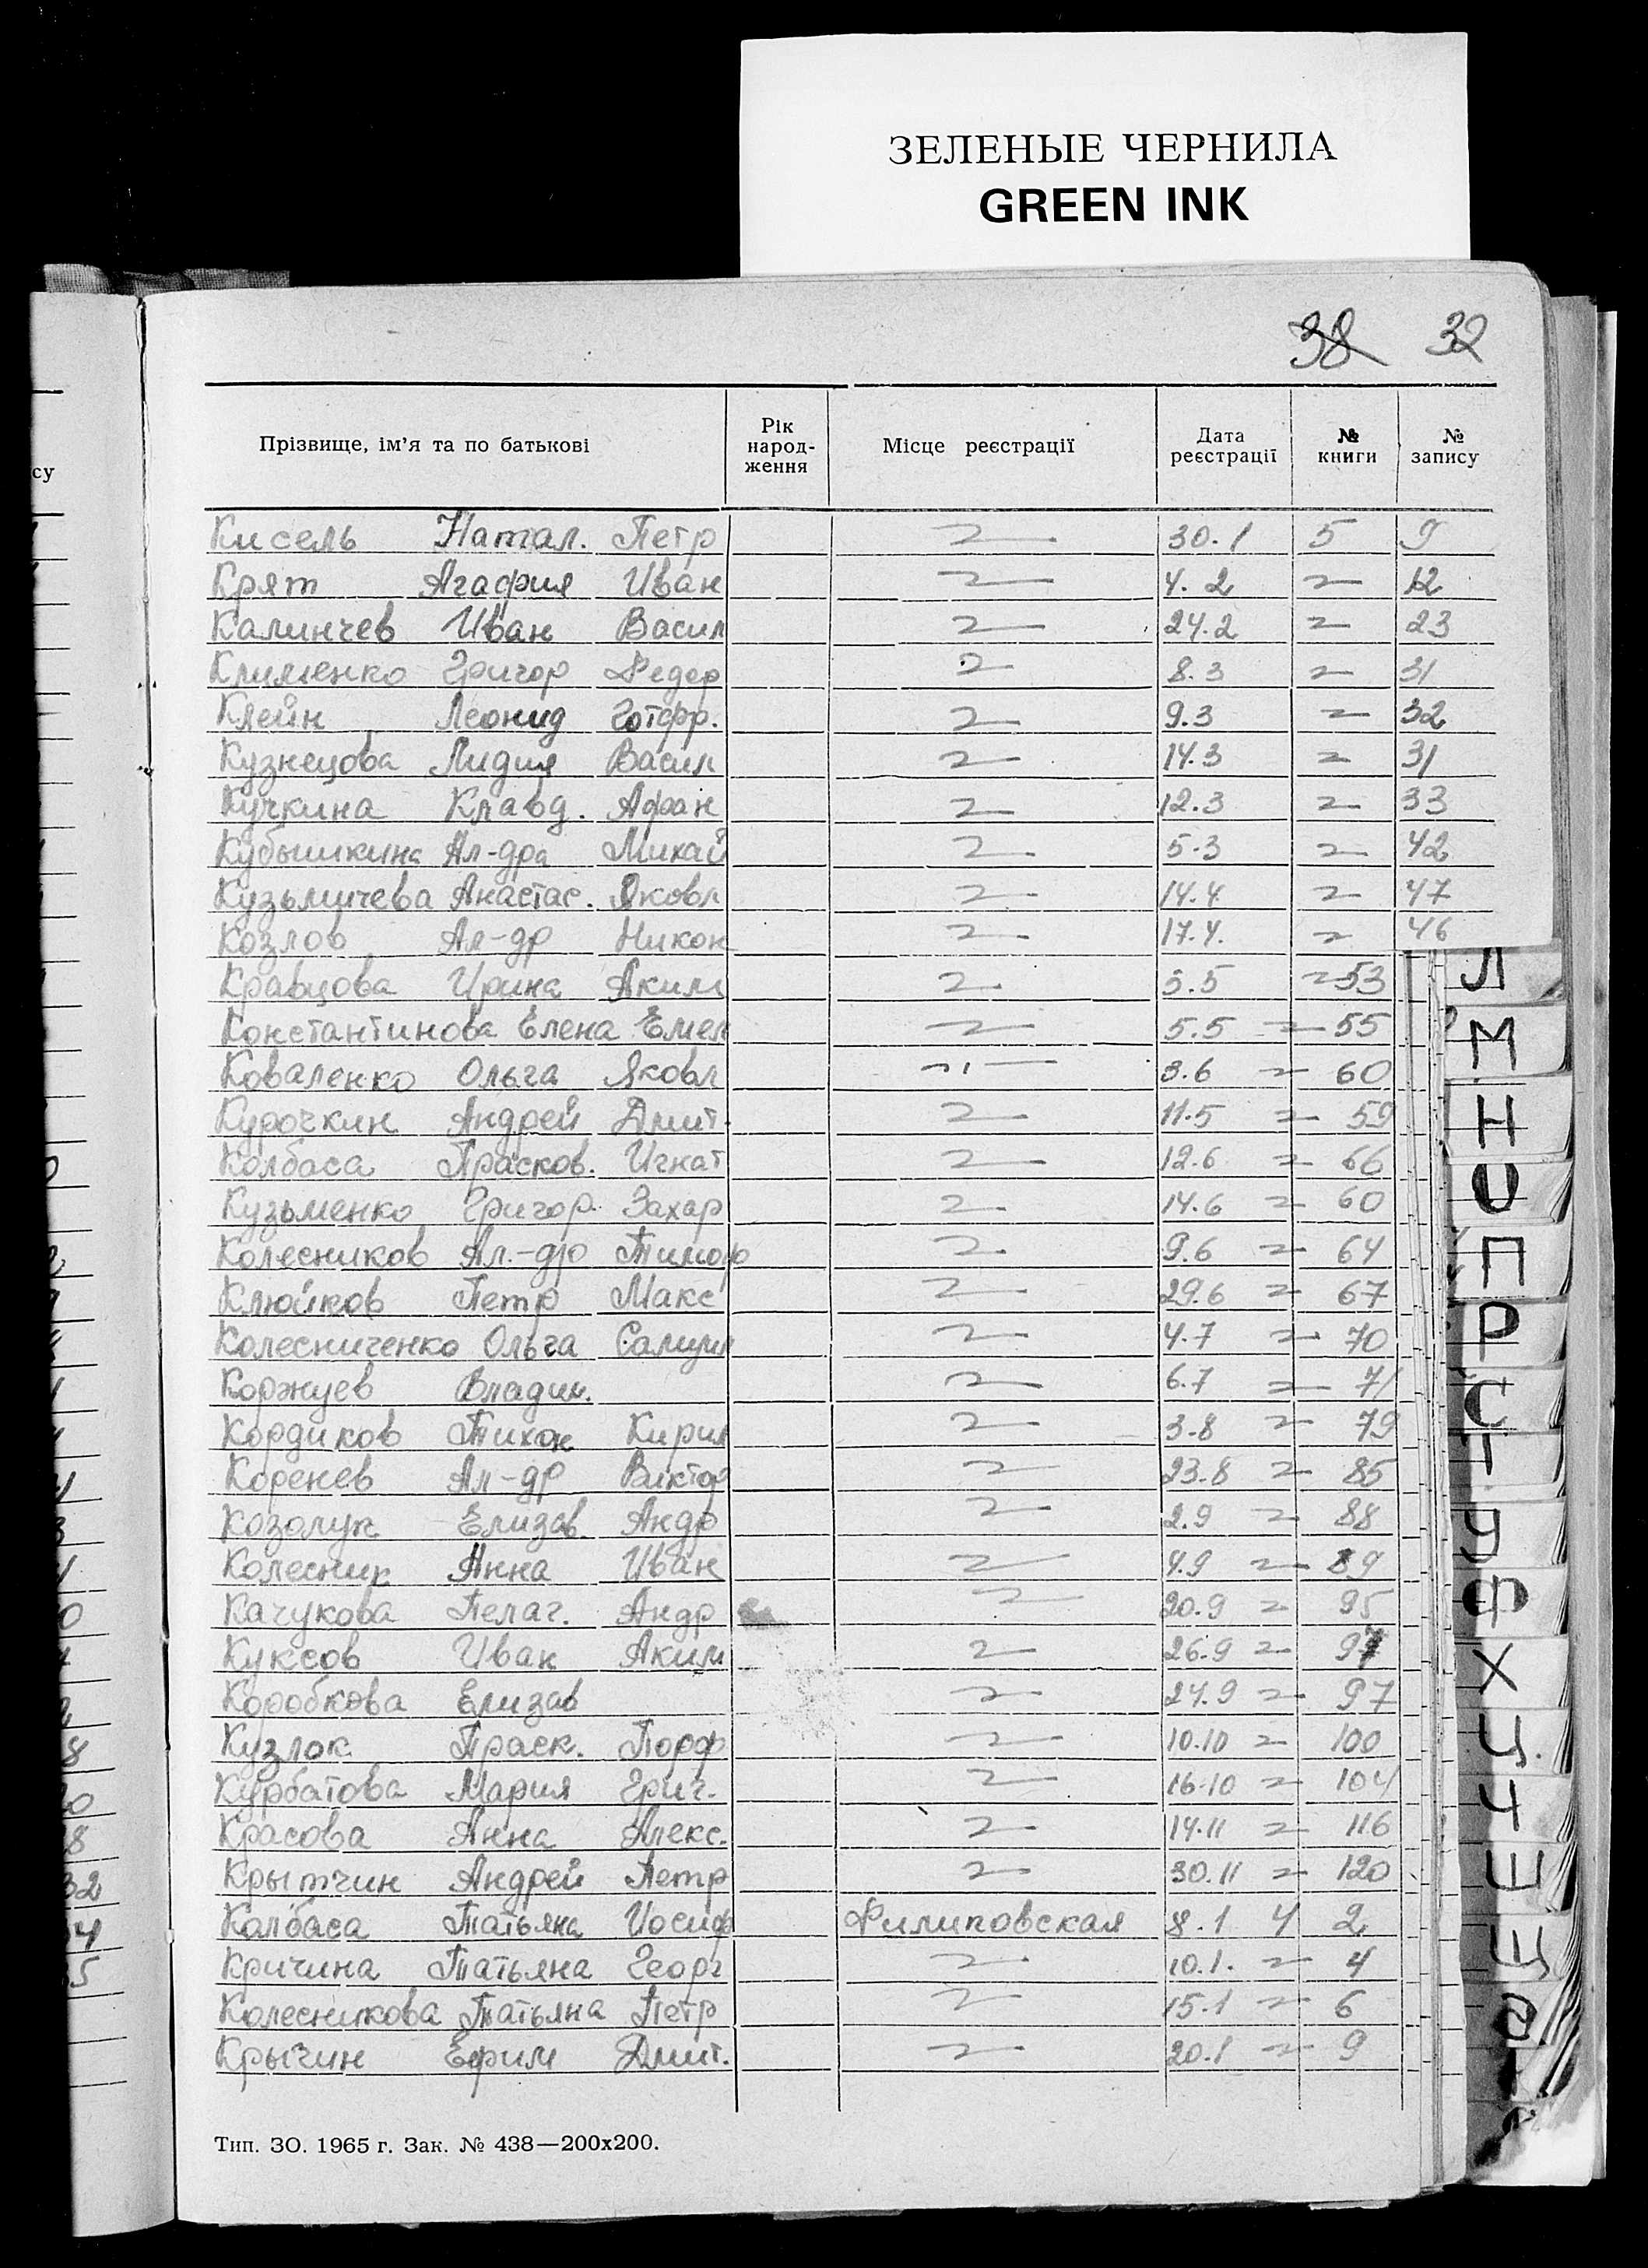 ЗЕЛЕНЫЕ ЧЕРНИЛА
GREEN INK
38 32
Прізвище, ім’я та по батькові Рік народ-ження Місце реєстрації Дата реєстрації № книги № запису
Кисель Натал. Петр 〃 30.1 5 9
Крят Агафия Иван 〃 4.2 〃 12
Калинчев Иван Васил 〃 24.2 〃 23
Клименко Григор Федер 〃 8.3 〃 31
Клейн Леонид Готфр. 〃 9.3 〃 32
Кузнецова Лидия Васил 〃 14.3 〃 31
Кучкина Клавд. Афан 〃 12.3 〃 33
Кубышкина Ал-дра Михай 〃 5.3 〃 42
Кузьмичева Анастас. Яковл 〃 14.4 〃 47
Козлов Ал-др Никон 〃 17.4. 〃 46
Кравцова Ирина Аким 〃 5.5 〃 53
Константинова Елена Емел 〃 5.5 〃 55
Коваленко Ольга Яковл 〃 3.6 〃 60
Курочкин Андрей Дмит. 〃 11.5 〃 59
Колбаса Прасков. Игнат 〃 12.6 〃 66
Кузьменко Григор. Захар 〃 14.6 〃 60
Колесников Ал.-др Тимоф 〃 9.6 〃 64
Клюйков Петр Макс 〃 29.6 〃 67
Колесниченко Ольга 〃 4.7 〃 70
Коржуев Владим. 〃 6.7 〃 71
Кордиков Тихон Кирил 〃 3.8 〃 79
Коренев Ал-др Виктор 〃 23.8 〃 85
Козолуп Елизав. Андр 〃 2.9 〃 88
Колесник Анна Иван 〃 4.9 〃 89
Качукова Пелаг. Андр 〃 20.9 〃 95
Куксов Иван Аким 〃 26.9 〃 97
Коробкова Елизав 〃 24.9 〃 97
Кузлок Праск. Порф 〃 10.10 〃 100
Курбатова Мария Григ. 〃 16.10 〃 104
Красова Анна Алекс. 〃 14.11 〃 116
Крытчин Андрей Петр 〃 30.11 〃 120
Колбаса Татьяна Иосиф Филиповская 8.1 4 2
Кричина Татьяна Георг 〃 10.1. 〃 4
Колесникова Татьяна Петр 〃 15.1 〃 6
Крычин Ефим Дмит. 〃 20.1 〃 9
Тип. ЗО. 1965 г. Зак. № 438—200х200.
Л
М
Н
О
П
Р
С
Т
У
Ф
Х
Ц
Ч
Ш
Щ